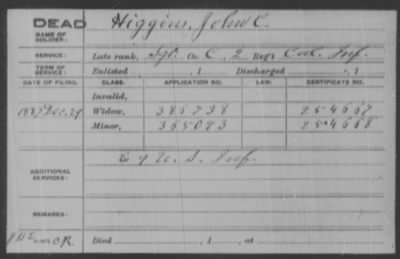 DEAD
NAME OF SOLDIER: Higgins, John C.
SERVICE: Late rank, Sgt. Co. C, 2 Reg't Col. Inf.
TERM OF SERVICE: Enlisted , 1 Discharged , 1
DATE OF FILING. CLASS. APPLICATION NO. LAW. CERTIFICATE NO.
Invalid,
1887 Dec. 29 Widow, 365738 254667
Minor, 365093 254668
ADDITIONAL SERVICES: E 7 U. S. Inf.
REMARKS:
Died , 1 , at